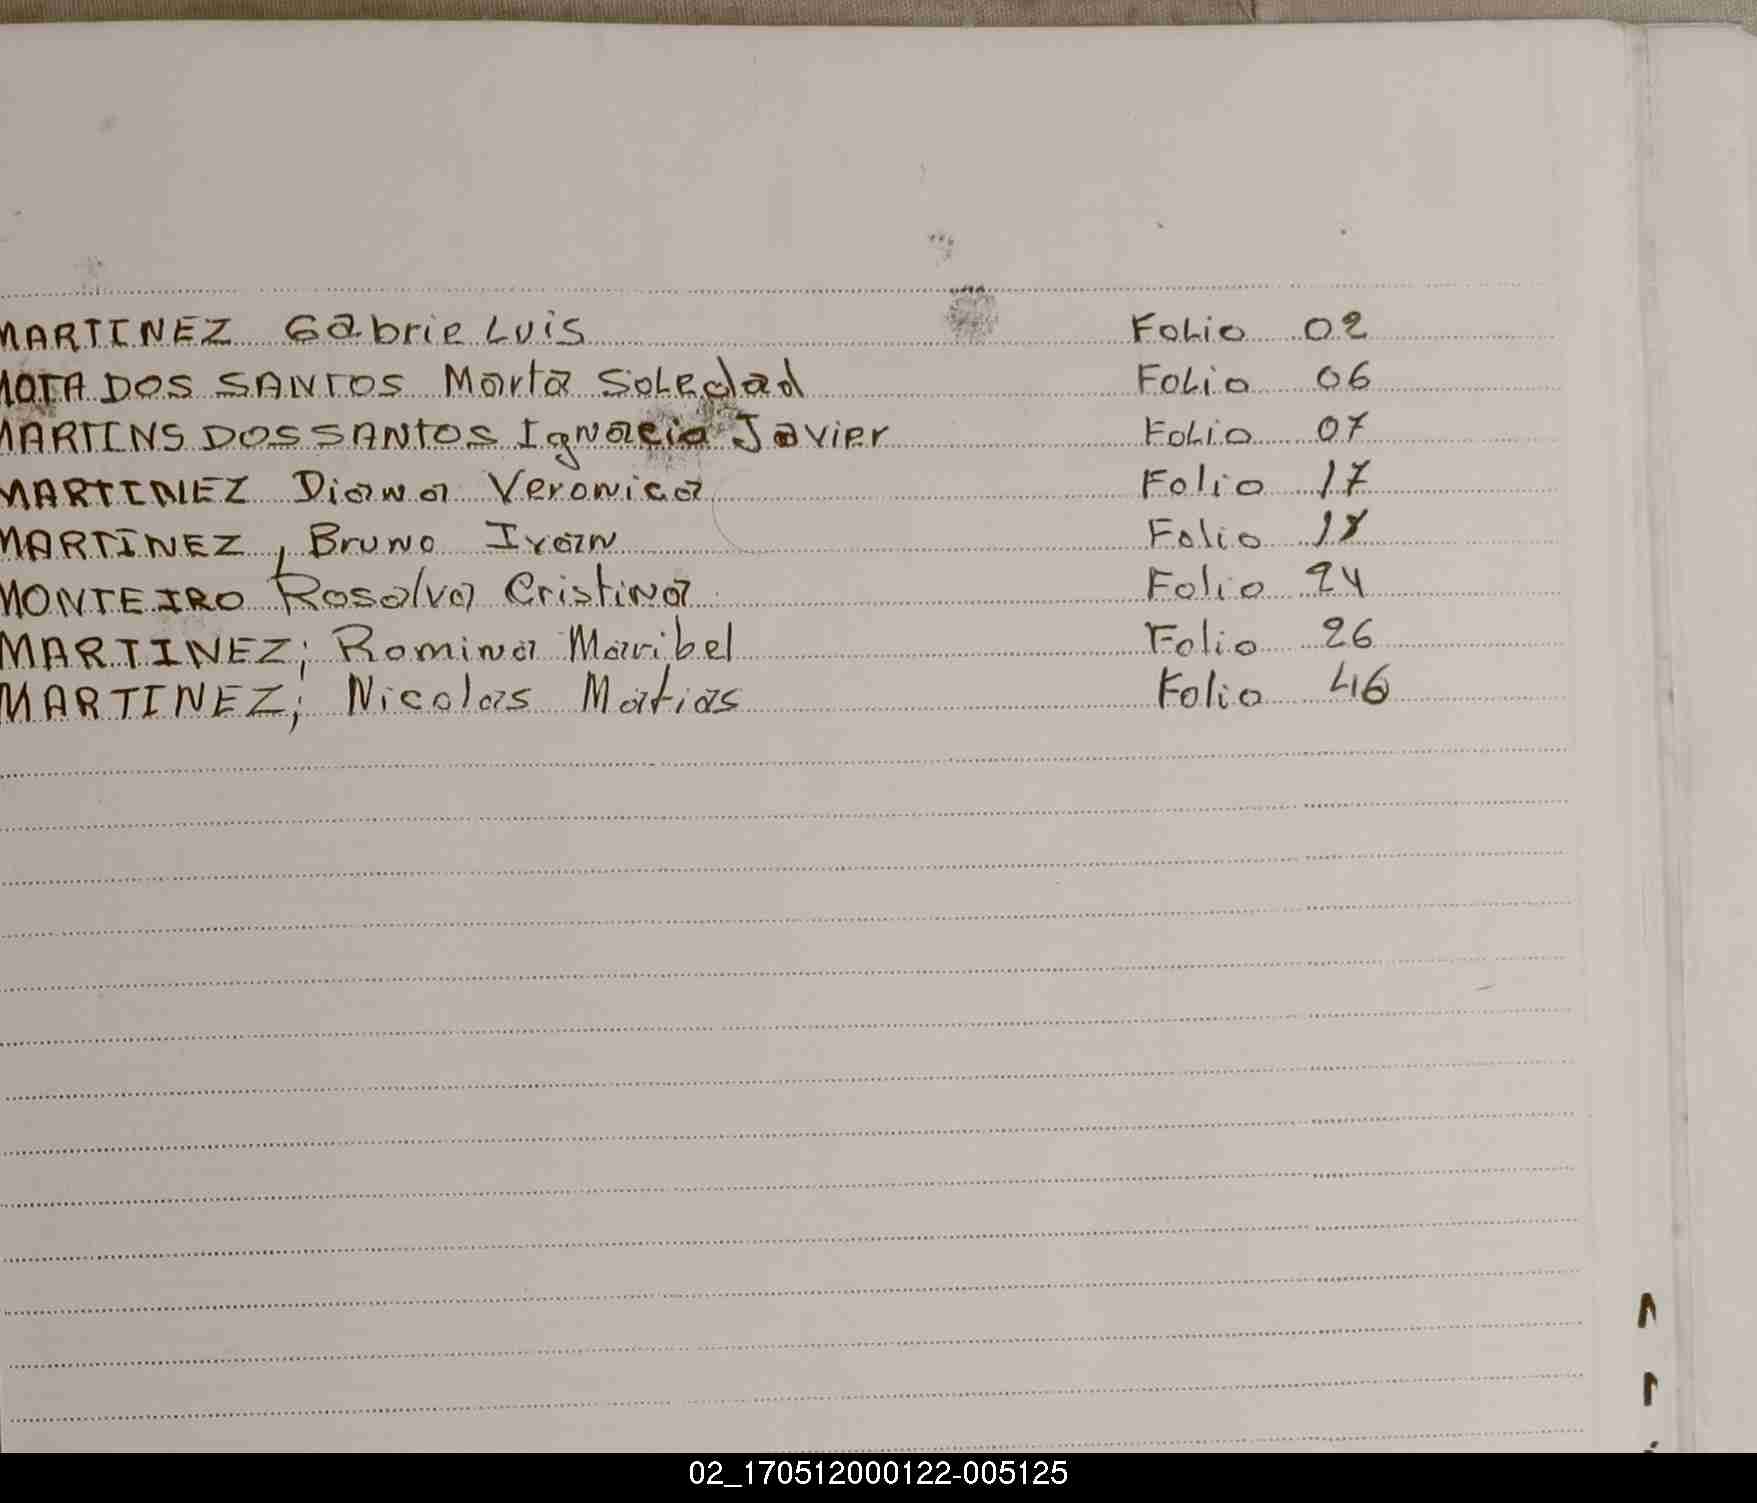 MARTINEZ Gabrie Luis Folio 02
MOTA DOS SANTOS Marta Soledad Folio 06
MARTINS DOS SANTOS Ignacio Javier Folio 07
MARTINEZ Diana Veronica Folio 17
MARTINEZ, Bruno Ivan Folio 18
MONTEIRO Rosalva Cristina Folio 24
MARTINEZ; Romina Maribel Folio 26
MARTINEZ; Nicolas Matias Folio 46
02_170512000122-005125